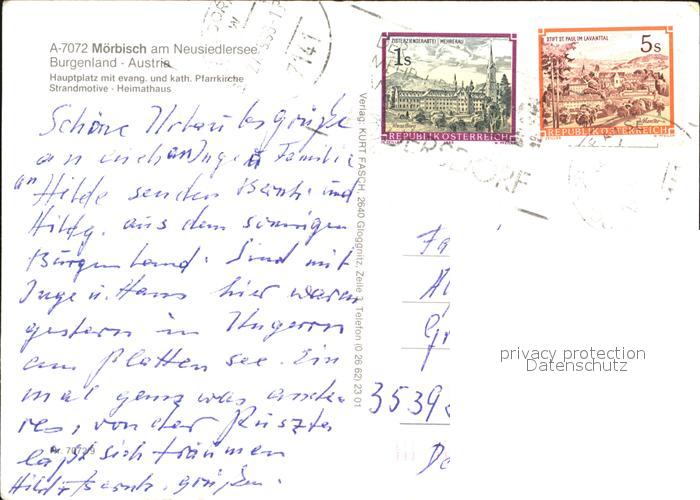 A-7072 Mörbisch am Neusiedlersee
Burgenland - Austria
Hauptplatz mit evang. und kath. Pfarrkirche
Strandmotive - Heimathaus
Schöne Urlaubsgrüße
an euch Familie
Hilde senden Bernh. und
Hildg. aus dem sonnigen
Burgenland. Sind mit
Inge u. Hans hier waren
gestern in Ungarn
am Platten see. Ein
mal ganz was ande
res, von der Puszta
läßt sich träumen
Hild + Bernh. grüßen.
Nr. 7072/9
Verlag: KURT FASCH, 2640 Gloggnitz, Zeile 3, Telefon (0 26 62) 23 01
ZISTERZIENSERABTEI MEHRERAU
1s
REPUBLIK ÖSTERREICH
STIFT ST. PAUL IM LAVANTTAL
5s
REPUBLIK ÖSTERREICH
7141
ERSDORF
Fa
Gr
3539
De
privacy protection
Datenschutz